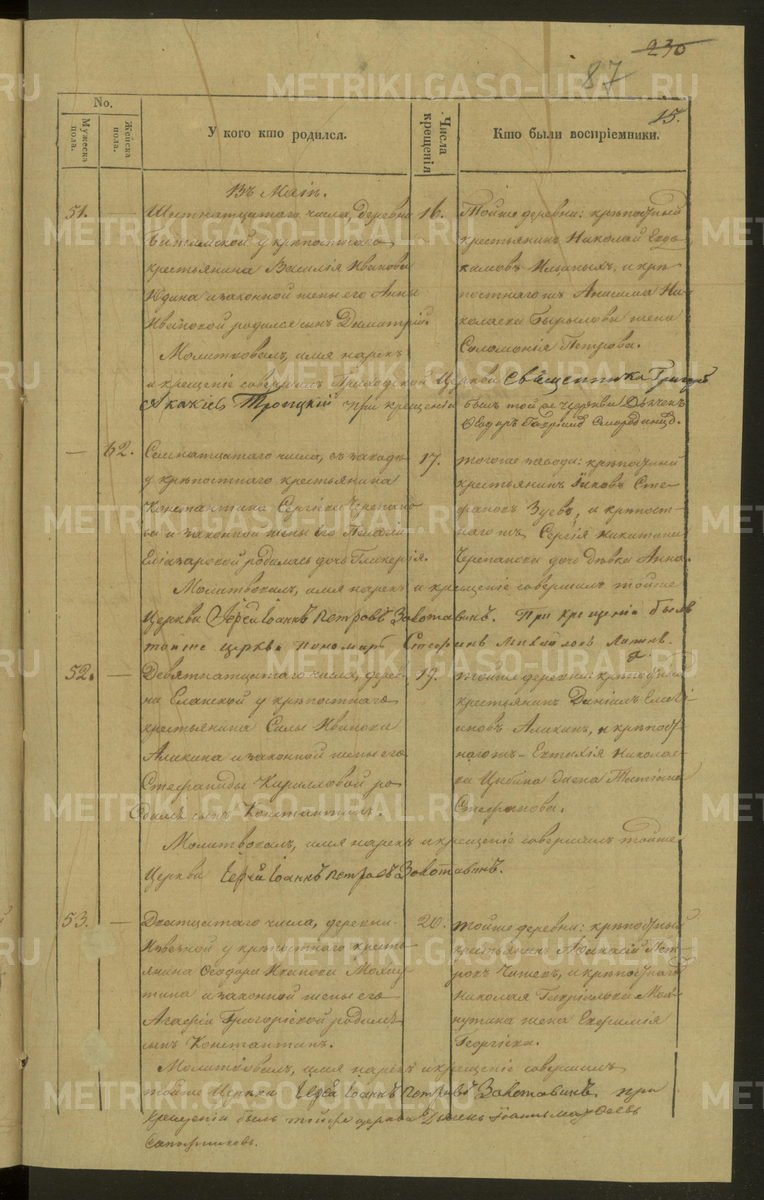 230
87
15.
No.
Мужеска пола.
Женска пола.
У кого кто родился.
Числа крещенія
Кто были воспріемники.
Въ Маіѣ.
51. — Шестнатцатаго числа, деревни
у крѣпостнаго
крестьянина Василія Иванова
Юдина и законной жены его Анны
Ивановой родился сынъ Димитрій.
16. Тойже деревни: крѣпостный
крестьянинъ Николай Евдо
кимовъ и крѣ
постнагожъ Анисима Ни
колаева жена
Соломонія Петрова.
Молитвовалъ, имя нарекъ
и крещеніе совершилъ Приходской Церкви Священникъ Григорій
Троицкій при крещеніи былъ той же церкви
— 62. Семнатцатаго числа, въ заводѣ
у крѣпостнаго крестьянина
Константина Сергѣева Черепано
ва и законной жены его Пелагіи
Еліазаровой родилась дочь Гликерія.
17. тогоже завода: крѣпостный
крестьянинъ Іаковъ Сте
фановъ Зуевъ, и крѣпост
нагожъ Сергія Никитина
Черепанова дочь дѣвка Анна.
Молитвовалъ, имя нарекъ и крещеніе совершилъ тойже
Церкви Іерей Іоаннъ Петровъ При крещеніи былъ
тойже церкви пономарь
52. — Девятнатцатаго числа, дерев
ни Еланской у крѣпостнаго
крестьянина Силы Иванова
Аликина и законной жены его
Стефаниды Кирилловой ро
дился сынъ Константинъ.
19. тойже деревни: крѣпостный
крестьянинъ Даніилъ
Аликинъ, и крѣпост
нагожъ Евтихія Николае
ва жена Татіана
Стефанова.
Молитвовалъ, имя нарекъ и крещеніе совершилъ тойже
Церкви Іерей Іоаннъ Петровъ
53. — Двадцатаго числа, деревни
у крѣпостнаго кресть
янина Ѳеодора Иванова
и законной жены его
Агафіи Григорьевой родился
сынъ Константинъ.
20. тойже деревни: крѣпостный
крестьянинъ Пет
ровъ и крѣпостнаго
Николая Гавріилова
жена Евфимія
Георгіева.
Молитвовалъ, имя нарекъ и крещеніе совершилъ
тойже Церкви Іерей Іоаннъ Петровъ при
крещеніи былъ тойже церкви
METRIKI.GASO-URAL.RU